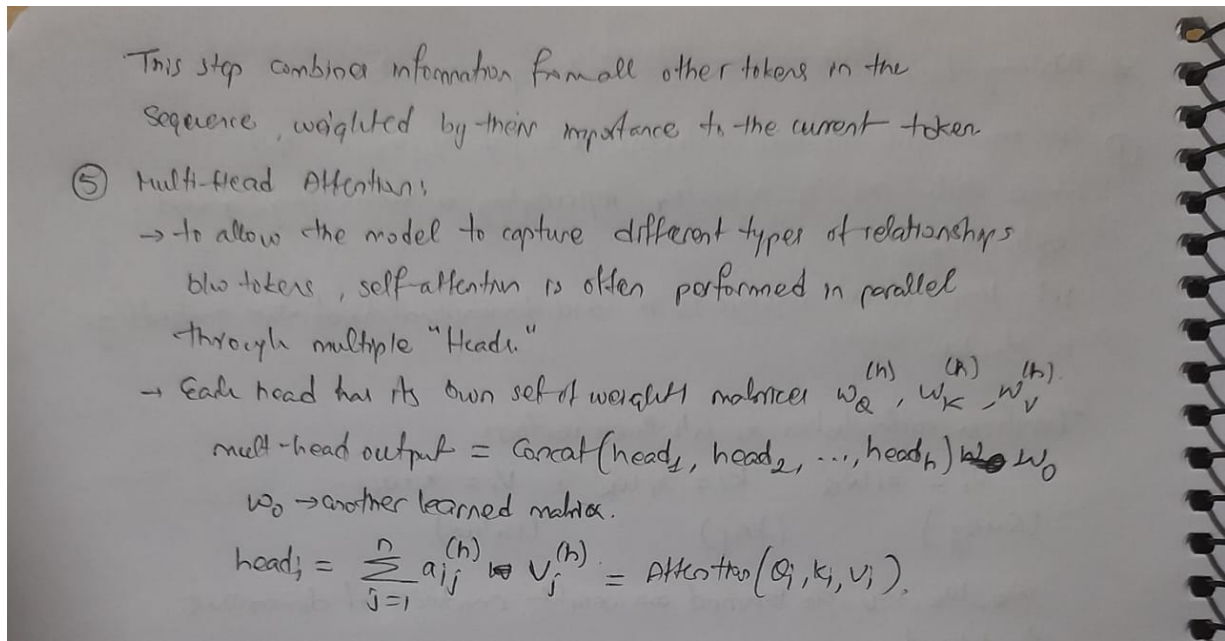 This step combines information from all other tokens in the
sequence, weighted by their importance to the current token
⑤ Multi-Head Attention:
→ to allow the model to capture different types of relationships
b/w tokens, self-attention is often performed in parallel
through multiple "Heads."
→ Each head has its own set of weights matrices W_Q^(h), W_K^(h), W_V^(h).
mult-head output = Concat(head_1, head_2, ..., head_h) W_O
W_O → another learned matrix.
head_i = ∑_{j=1}^{n} a_{ij}^(h) V_j^(h) = Attention(Q_i, K_i, V_i).